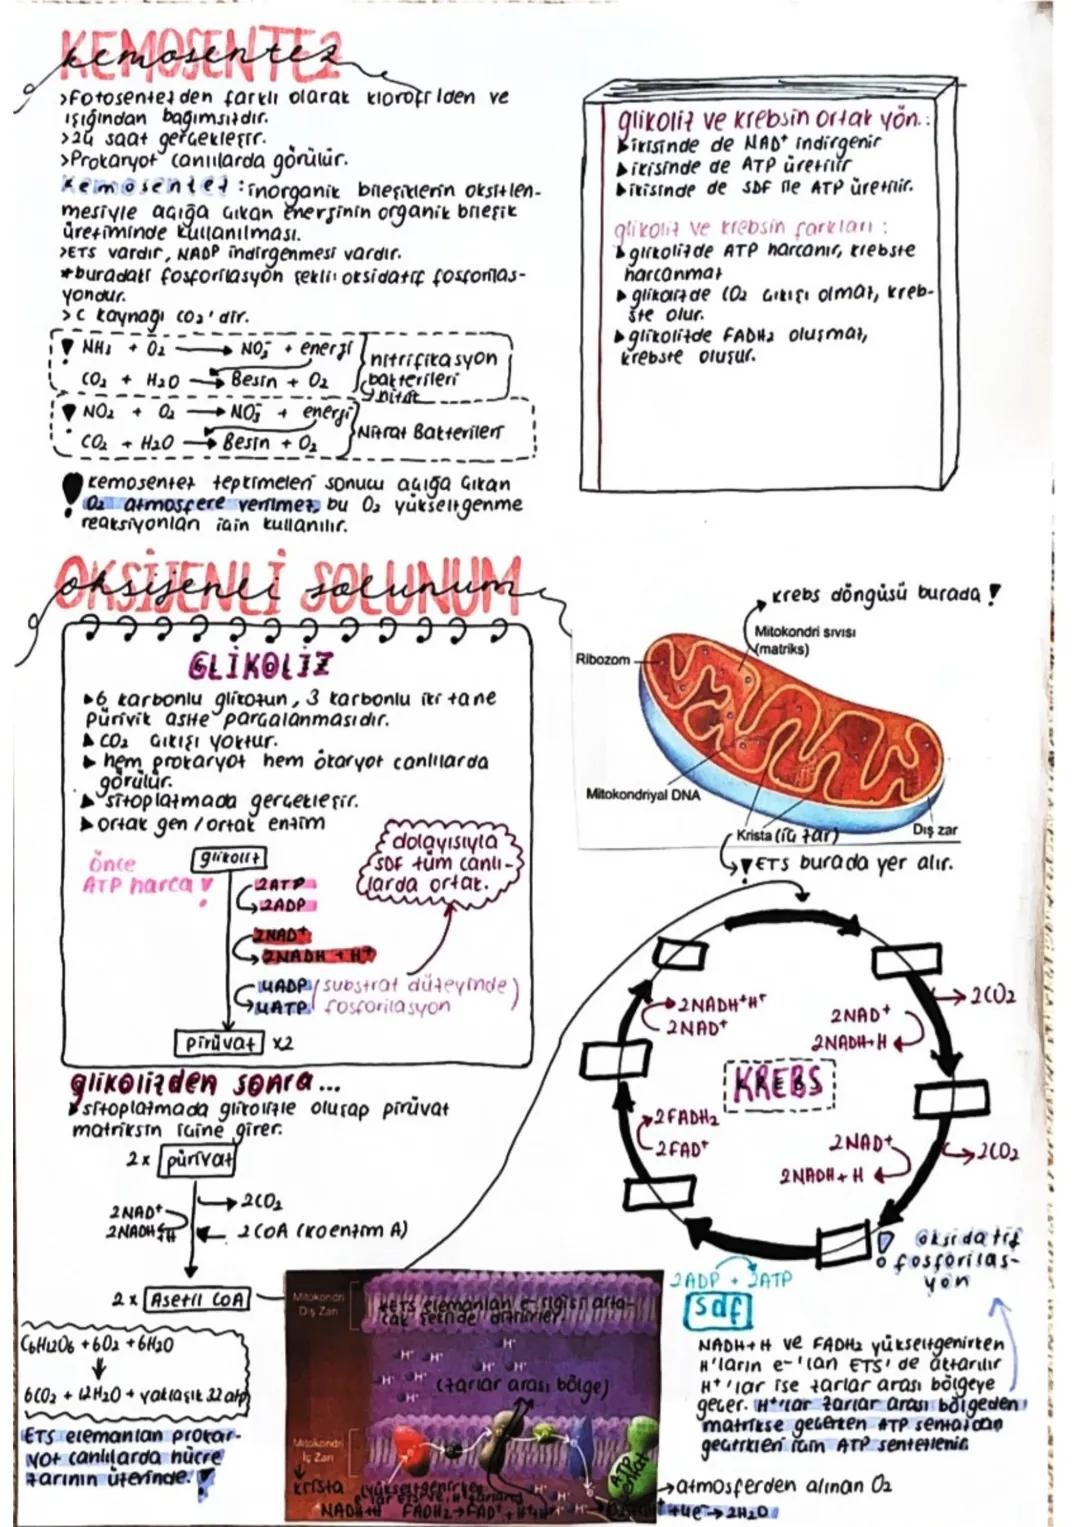 KEMOSENTEZ
kemosentez
>Fotosentezden farklı olarak klorofilden ve
ışığından bağımsızdır.
>24 saat gerçekleşir.
>Prokaryot canlılarda görülür.
Kemosentez: inorganik bileşiklerin oksitlen-
mesiyle açığa çıkan enerjinin organik bileşik
üretiminde kullanılması.
>ETS vardır, NADP indirgenmesi vardır.
*buradaki fosforilasyon şekli: oksidatif fosforilas-
yondur.
>C kaynağı CO₂'dir.
NH₃ + O₂ → NO₂⁻ + enerji
CO₂ + H₂O → Besin + O₂
nitrifikasyon
bakterileri
nitrit
NO₂ + O₂ → NO₃⁻ + enerji
CO₂ + H₂O → Besin + O₂
Nitrat Bakterileri
kemosentez tepkimeleri sonucu açığa çıkan
O₂ atmosfere verilmez, bu O₂ yükseltgenme
reaksiyonları için kullanılır.
glikoliz ve krebsin ortak yön.:
▸ikisinde de NAD⁺ indirgenir
▸ikisinde de ATP üretilir
▸ikisinde de SDF ile ATP üretilir.
glikoliz ve krebsin farkları:
▸glikolizde ATP harcanır, krebste
harcanmaz
▸glikolizde CO₂ çıkışı olmaz, kreb-
ste olur.
▸glikolizde FADH₂ oluşmaz,
krebste oluşur.
OKSİJENLİ SOLUNUM
oksijenli solunum
GLİKOLİZ
▸6 karbonlu glikozun, 3 karbonlu iki tane
pürivik asite parçalanmasıdır.
▸CO₂ çıkışı yoktur.
▸hem prokaryot hem ökaryot canlılarda
görülür.
▸sitoplazmada gerçekleşir.
▸ortak gen / ortak enzim
önce
ATP harca!
glikoliz
2ATP
2ADP
2NAD⁺
2NADH + H⁺
4ADP
4ATP
(substrat düzeyinde)
fosforilasyon
dolayısıyla
SDF tüm canlı-
larda ortak.
pirüvat x2
glikolizden sonra...
▸sitoplazmada glikolizle oluşap pirüvat
matriksin içine girer.
2x pürivat
2NAD⁺
2NADH+H
2CO₂
2 CoA (koenzim A)
2x Asetil CoA
C₆H₁₂O₆ + 6O₂ + 6H₂O
6CO₂ + 12H₂O + yaklaşık 32 atp
ETS elemanları prokar-
yot canlılarda hücre
zarının üzerinde.!
krebs döngüsü burada!
Mitokondri sıvısı
(matriks)
Ribozom
Mitokondriyal DNA
Krista (iç zar)
Dış zar
!ETS burada yer alır.
KREBS
2CO₂
2NAD⁺
2NADH+H
2CO₂
2NAD⁺
2NADH+H
2ADP + 2ATP
sdf
2FADH₂
2FAD⁺
2NADH⁺H⁺
2NAD⁺
! oksidatif
fosforilas-
yon
NADH+H ve FADH₂ yükseltgenirken
H'ların e-'ları ETS'de aktarılır
H⁺'lar ise zarlar arası bölgeye
geçer. H⁺'lar zarlar arası bölgeden
matrikse geçerken ATP sentazdan
geçtikleri için ATP sentezlenir
Mitokondri
Dış Zarı
*ETS elemanları e- ilgisi arta-
cak şekilde dizilirler.
H⁺
(zarlar arası bölge)
Mitokondri
İç Zarı
krista
(yükseltgenirken
NADH+H FADH₂→FAD⁺+H⁺
ATP
→atmosferden alınan O₂
+4e⁻→2H₂O